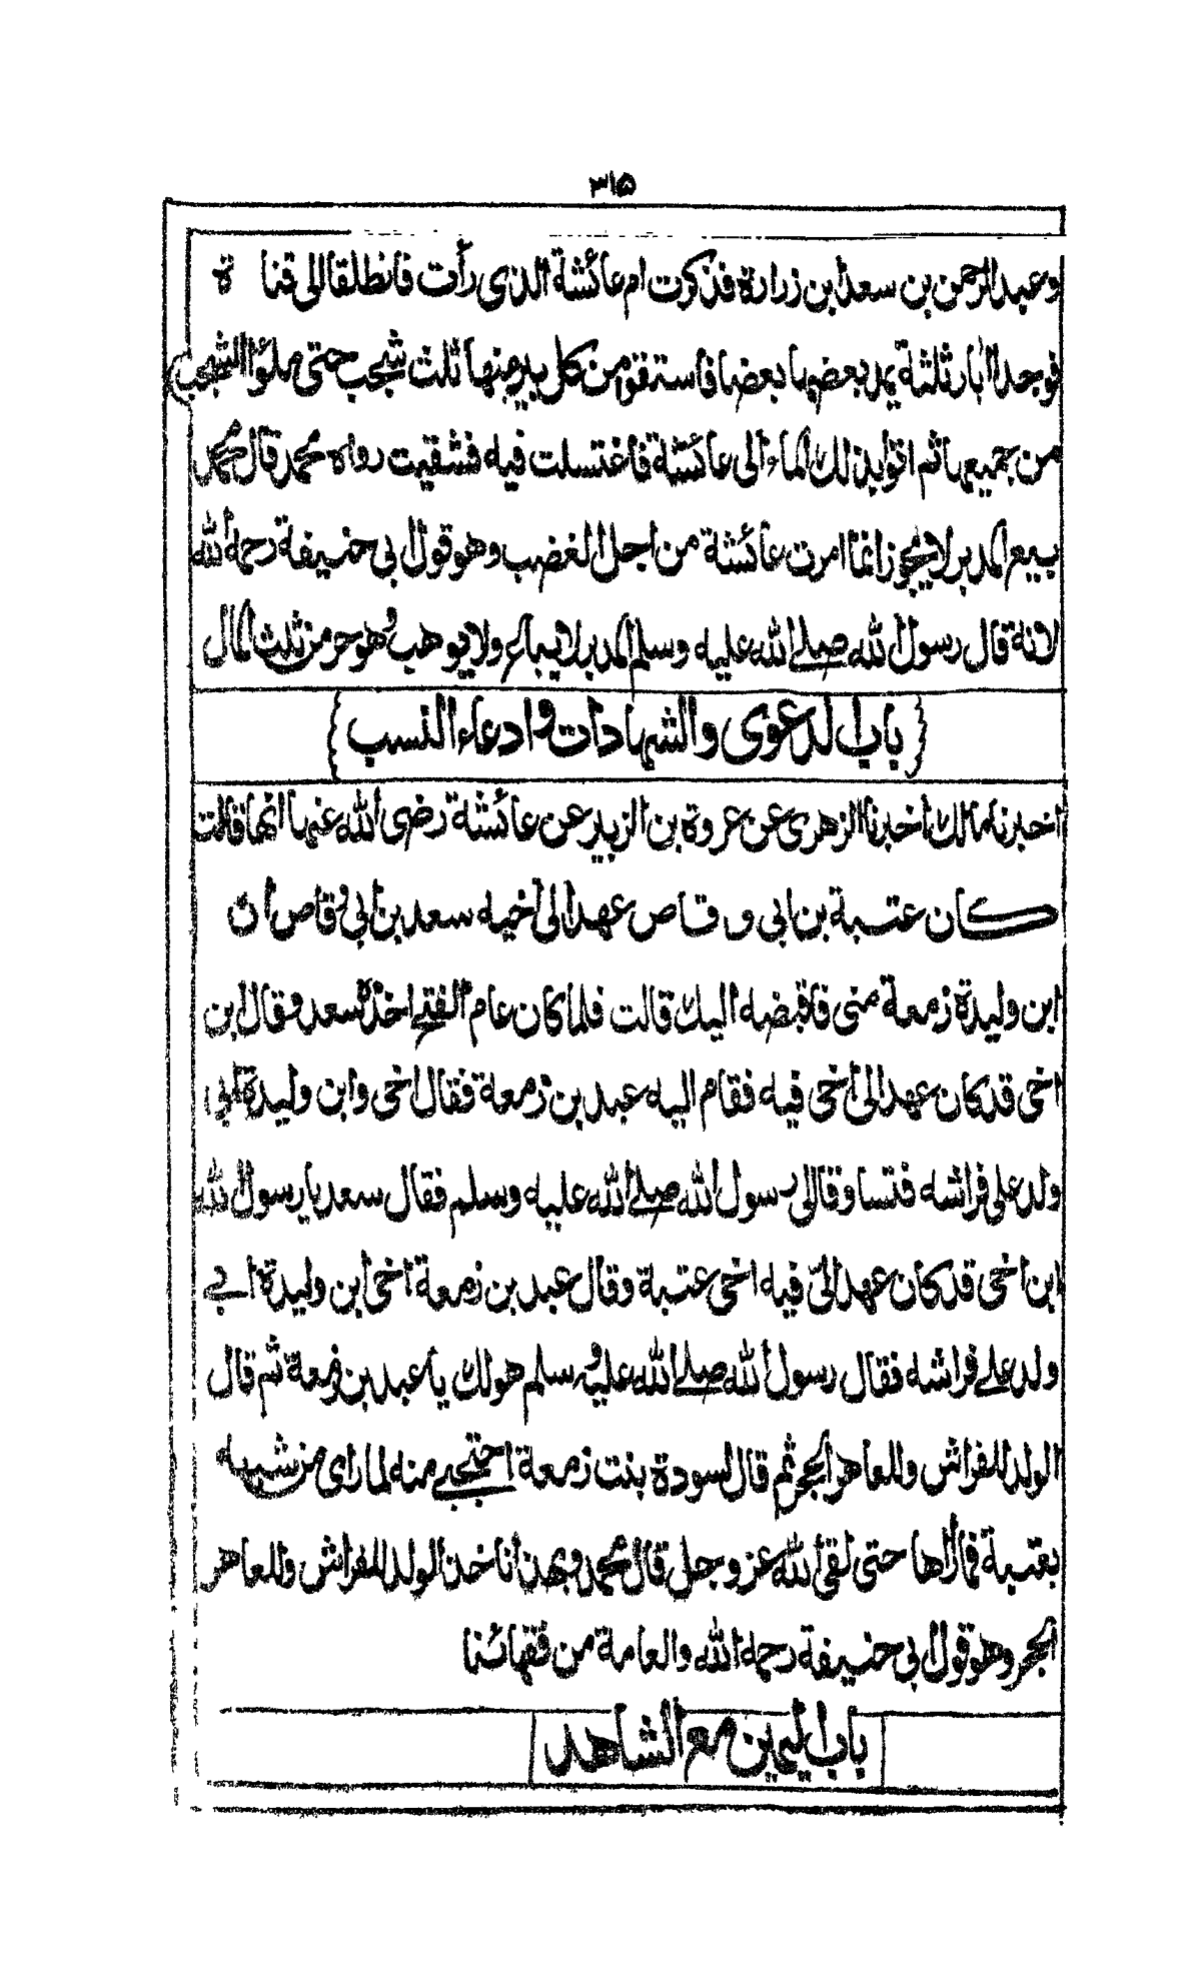 ٣١٥
وعبد الرحمن بن سعد ابن زرارة فذكرت ام عائشة الذى رأت فانطلقا الى قناة
فوجدا ابار ثلثة يمد بعضها بعضا فاستقوا من كل بير منها ثلث شجب حتى ملؤا الشجب
من جميعها ثم اتوا بذلك الماء الى عائشة فاغتسلت فيه فشفيت رواه محمد قال محمد
بيع المدبر لا يجوز انما امرت عائشة من اجل الغضب وهو قول ابى حنيفة رحمه الله
لانه قال رسول الله صلى الله عليه وسلم المدبر لا يباع ولا يوهب وهو حر من ثلث المال
باب الدعوى والشهادات وادعاء النسب
اخبرنا مالك اخبرنا الزهرى عن عروة بن الزبير عن عائشة رضى الله عنها انها قالت
كان عتبة بن ابى وقاص عهد الى اخيه سعد بن ابى وقاص ان
ابن وليدة زمعة منى فاقبضه اليك قالت فلما كان عام الفتح اخذه سعد وقال ابن
اخى قد كان عهد الى اخى فيه فقام اليه عبد بن زمعة فقال اخى وابن وليدة ابى
ولد على فراشه فتساوقا الى رسول الله صلى الله عليه وسلم فقال سعد يا رسول الله
ابن اخى قد كان عهد الىّ فيه اخى عتبة وقال عبد بن زمعة اخى ابن وليدة ابى
ولد على فراشه فقال رسول الله صلى الله عليه وسلم هو لك يا عبد بن زمعة ثم قال
الولد للفراش وللعاهر الحجر ثم قال لسودة بنت زمعة احتجبى منه لما راى من شبهه
بعتبة فما راها حتى لقى الله عز وجل قال محمد وبهذا ناخذ الولد للفراش وللعاهر
الحجر وهو قول ابى حنيفة رحمه الله والعامة من فقهائنا
باب اليمين مع الشاهد